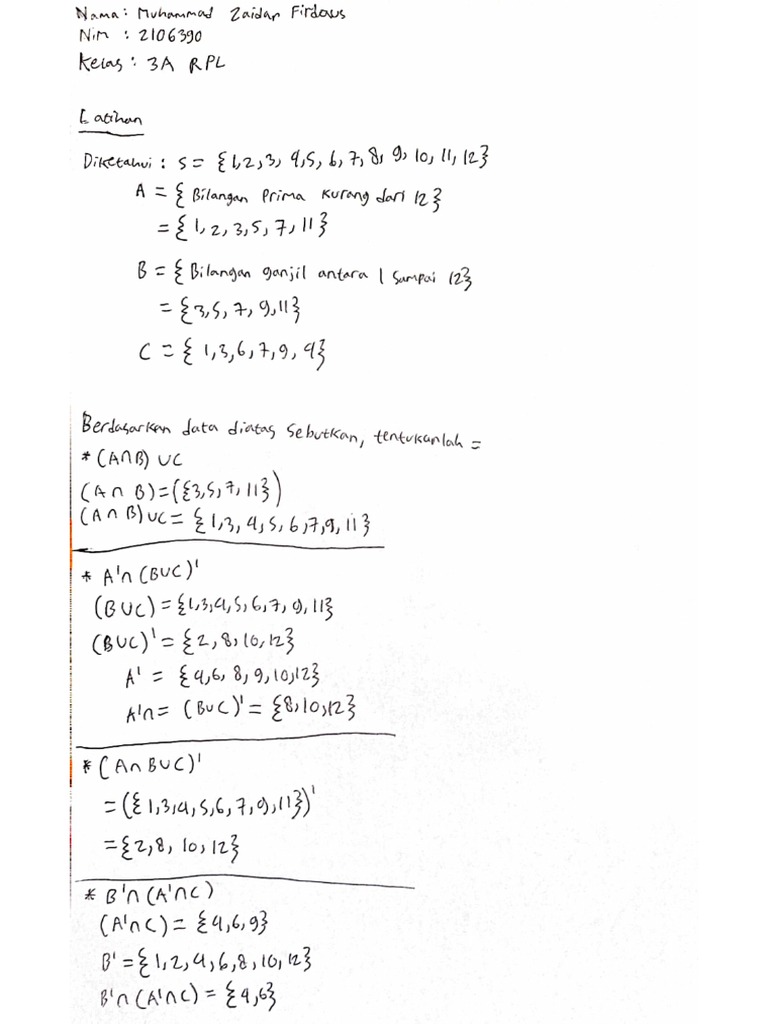 Nama : Muhammad Zaidar Firdaus
Nim : 2106390
Kelas : 3A RPL
Latihan
Diketahui : S = {1,2,3, 4,5, 6, 7, 8, 9, 10, 11, 12}
A = { Bilangan Prima kurang dari 12}
= { 1, 2, 3, 5, 7, 11}
B = { Bilangan ganjil antara 1 sampai 12}
= {3,5, 7, 9, 11}
C = { 1,3,6, 7, 9, 4}
Berdasarkan data diatas sebutkan, tentukanlah =
* (A∩B) UC
(A ∩ B) = ({3,5, 7, 11})
(A ∩ B) UC = { 1,3, 4, 5, 6, 7, 9, 11}
* A'∩ (BUC)'
(BUC) = {1,3,4, 5, 6, 7, 9, 11}
(BUC)' = {2, 8, 10, 12}
A' = {4,6, 8, 9, 10, 12}
A'∩ = (BUC)' = {8, 10, 12}
* (A∩BUC)'
= ({ 1,3,4, 5,6, 7, 9, 11})'
= {2, 8, 10, 12}
* B'∩ (A'∩C)
(A'∩C) = {4, 6, 9}
B' = {1, 2, 4, 6, 8, 10, 12}
B'∩ (A'∩C) = {4,6}